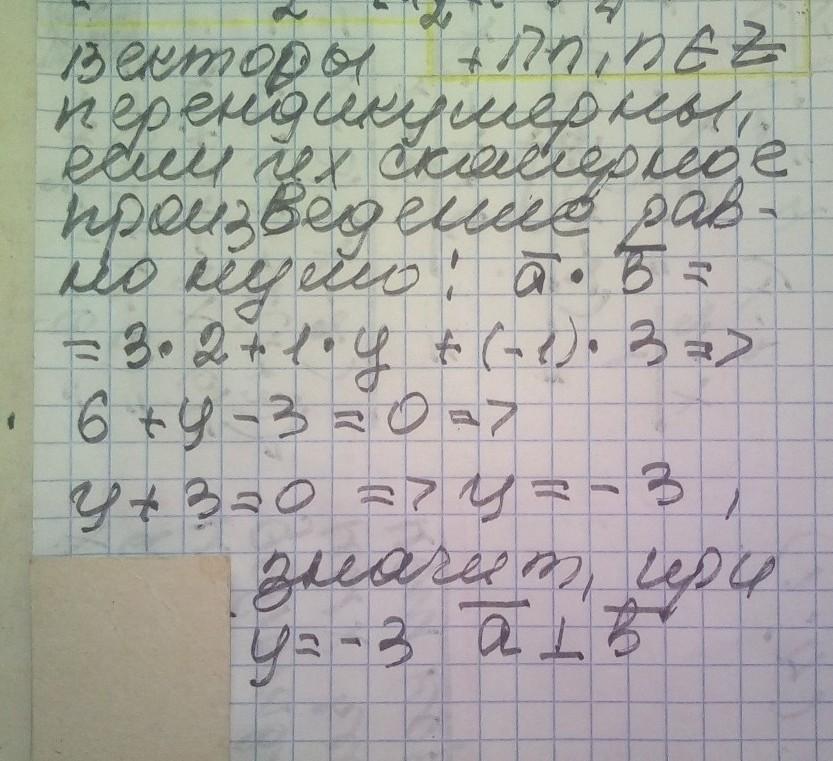 Векторы + πn, n ∈ Z
перпендикулярны,
если их скалярное
произведение рав-
но нулю: a̅ · b̅ =
= 3 · 2 + 1 · y + (-1) · 3 =>
6 + y - 3 = 0 =>
y + 3 = 0 => y = - 3 ,
значит, при
y = - 3 a̅ ⊥ b̅